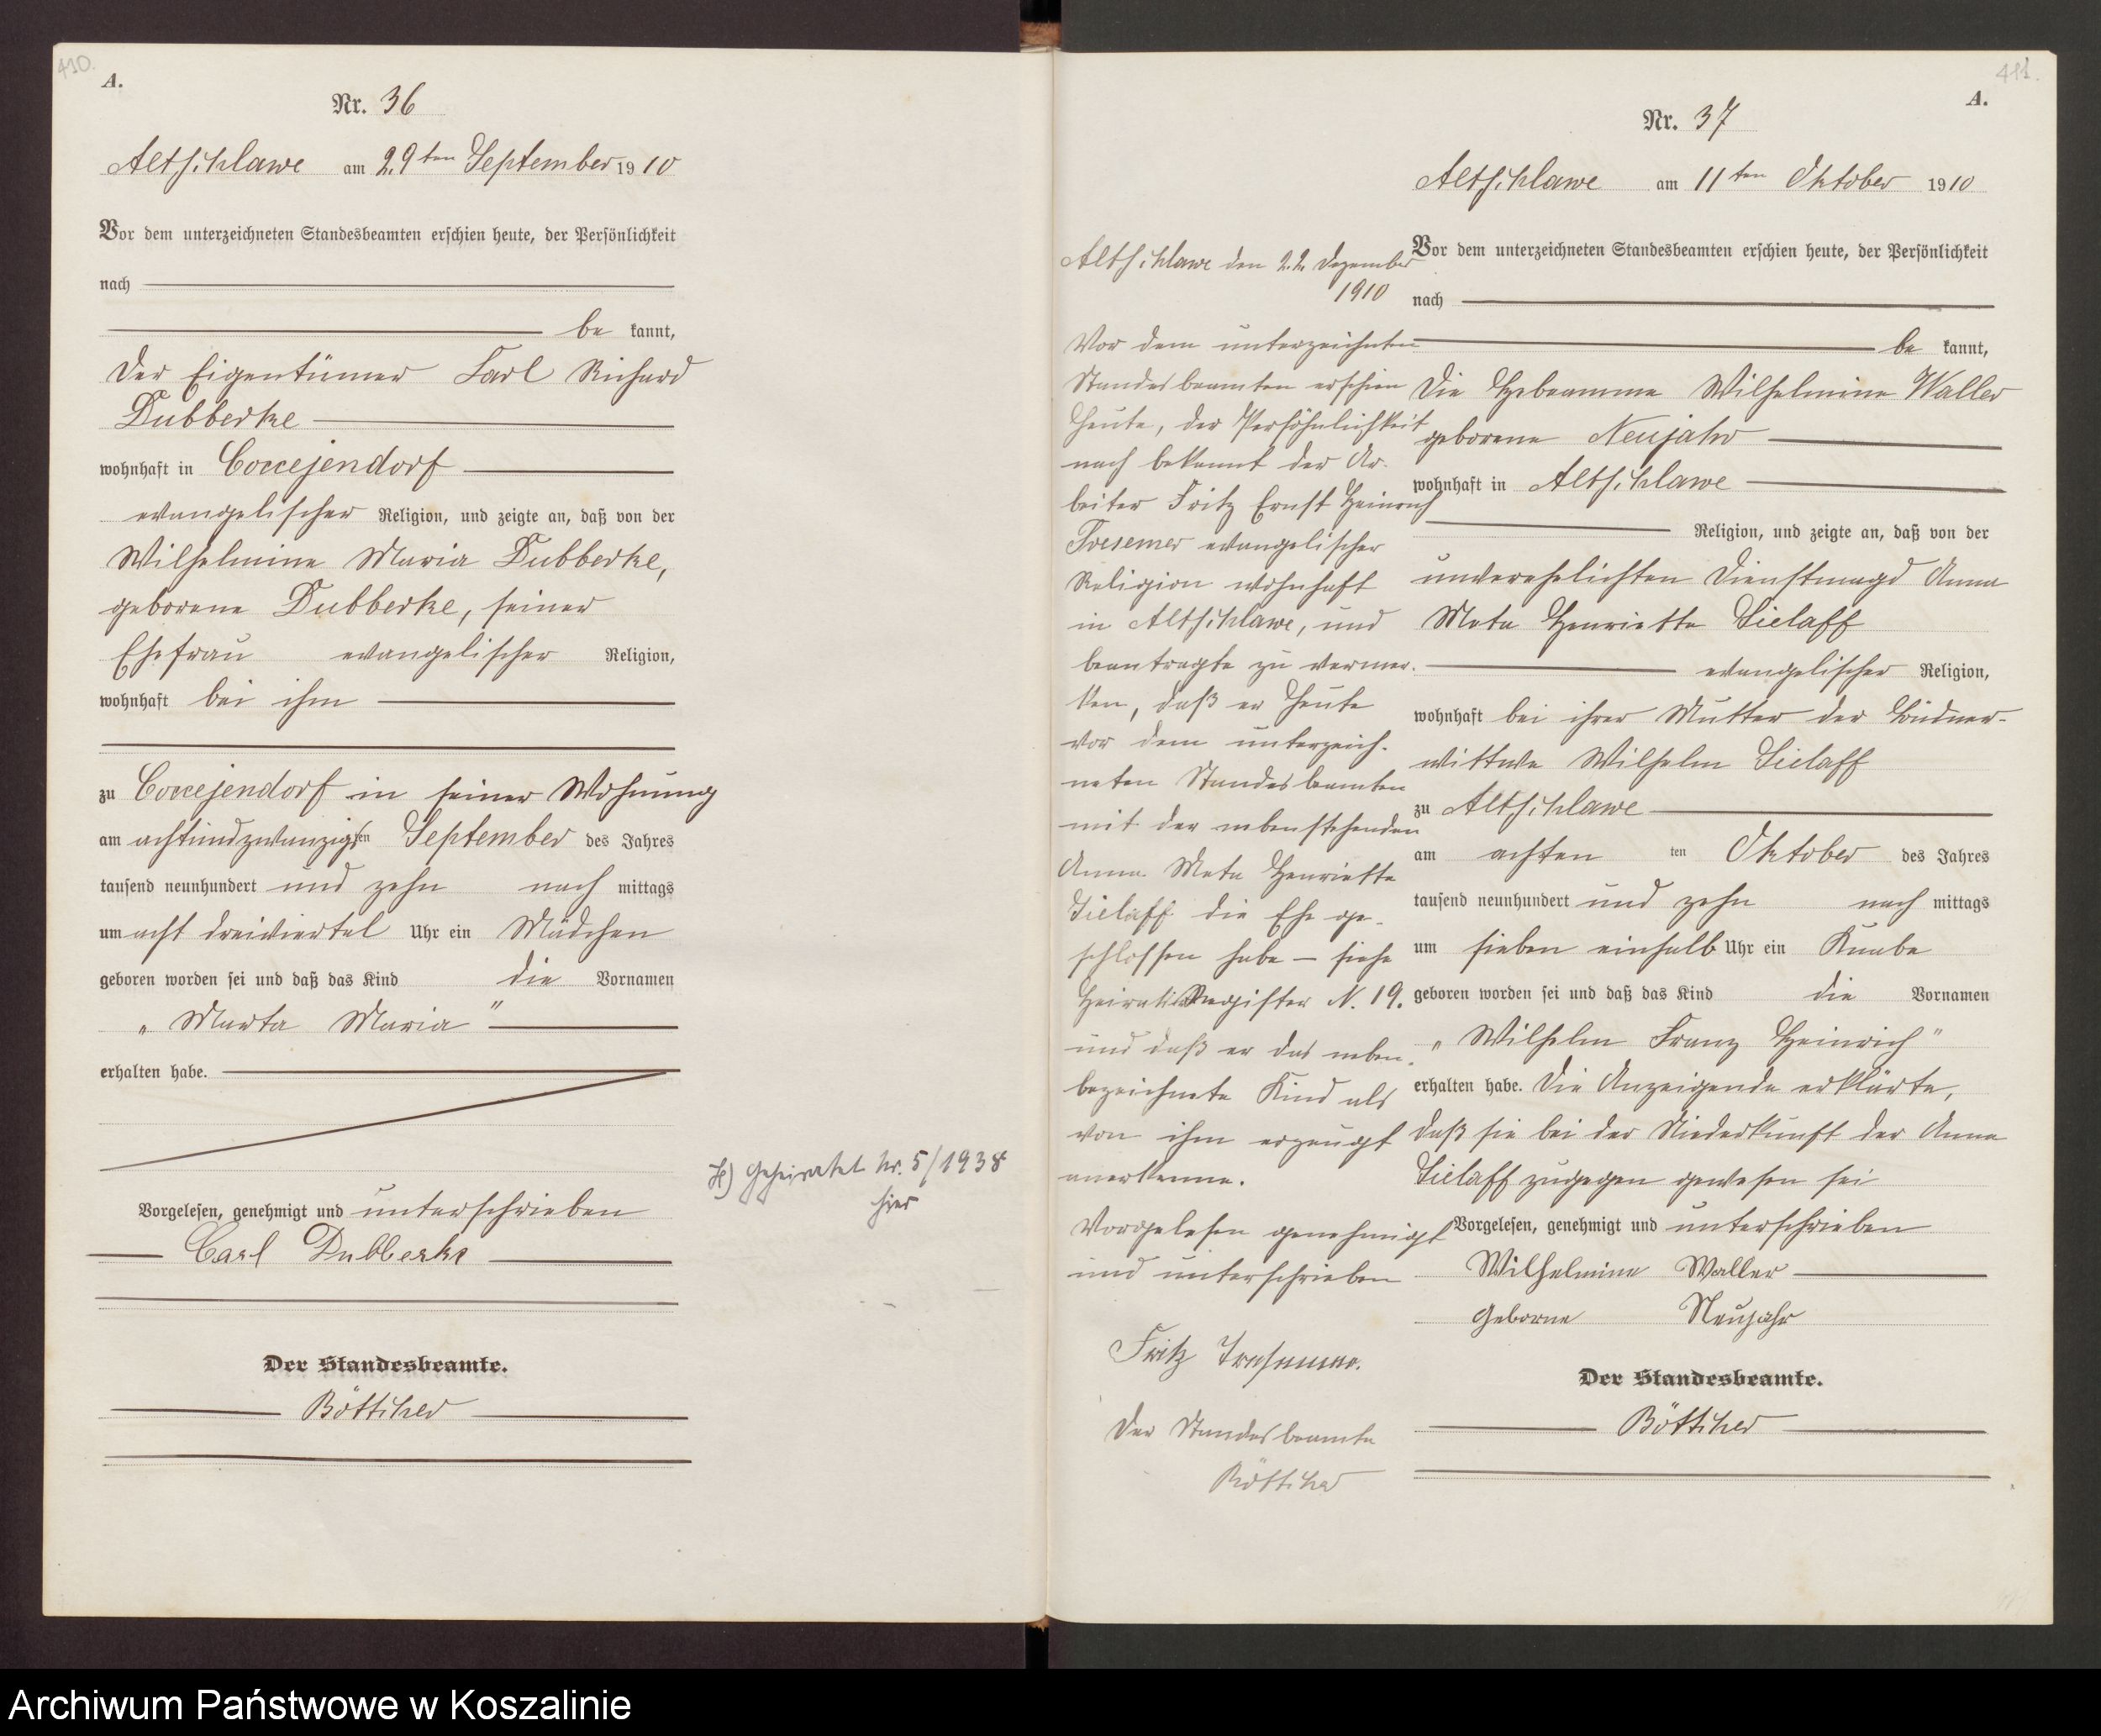 410.
A.
Nr. 36
Altschlawe am 29ten September 1910
Vor dem unterzeichneten Standesbeamten erschien heute, der Persönlichkeit
nach
be kannt,
der Eigentümer Carl Richard
Dubberke
wohnhaft in Coccejendorf
evangelischer Religion, und zeigte an, daß von der
Wilhelmine Maria Dubberke,
geborene Dubberke, seiner
Ehefrau evangelischer Religion,
wohnhaft bei ihm
zu Coccejendorf in seiner Wohnung
am achtundzwanzigsten September des Jahres
tausend neunhundert und zehn nach mittags
um acht dreiviertel Uhr ein Mädchen
geboren worden sei und daß das Kind die Vornamen
„Marta Maria"
erhalten habe.
Vorgelesen, genehmigt und unterschrieben
Carl Dubberke
Der Standesbeamte.
Böttcher
geheiratet Nr. 5/1938
hier
411.
A.
Nr. 37
Altschlawe am 11ten Oktober 1910
Vor dem unterzeichneten Standesbeamten erschien heute, der Persönlichkeit
nach
be kannt,
die Hebeamme Wilhelmine Waller
geborene Neujahr
wohnhaft in Altschlawe
Religion, und zeigte an, daß von der
unverehelichten Dienstmagd Anna
Meta Henriette Sielaff
evangelischer Religion,
wohnhaft bei ihrer Mutter der Büdner-
wittwe Wilhelm Sielaff
zu Altschlawe
am achten ten Oktober des Jahres
tausend neunhundert und zehn nach mittags
um sieben einhalb Uhr ein Knabe
geboren worden sei und daß das Kind die Vornamen
„Wilhelm Franz Heinrich"
erhalten habe. Die Anzeigende erklärte,
daß sie bei der Niederkunft der Anna
Sielaff zugegen gewesen sei
Vorgelesen, genehmigt und unterschrieben
Wilhelmine Waller
Geborne Neujahr
Der Standesbeamte.
Böttcher
Altschlawe den 22. Dezember
1910
Vor dem unterzeichneten
Standesbeamten erschien
heute, der Persöhnlichkeit
nach bekannt der Ar-
beiter Fritz Ernst Heinrich
Tresemer evangelischer
Religion wohnhaft
in Altschlawe, und
beantragte zu vermer-
ken, daß er heute
vor dem unterzeich-
neten Standesbeamten
mit der nebenstehenden
Anna Meta Henriette
Sielaff die Ehe ge-
schlossen habe — siehe
Heirats Register N. 19.
und daß er das neben-
bezeichnete Kind als
von ihm erzeugt
anerkenne.
Vorgelesen genehmigt
und unterschrieben
Fritz Tresemer.
Der Standesbeamte
Böttcher
Archiwum Państwowe w Koszalinie